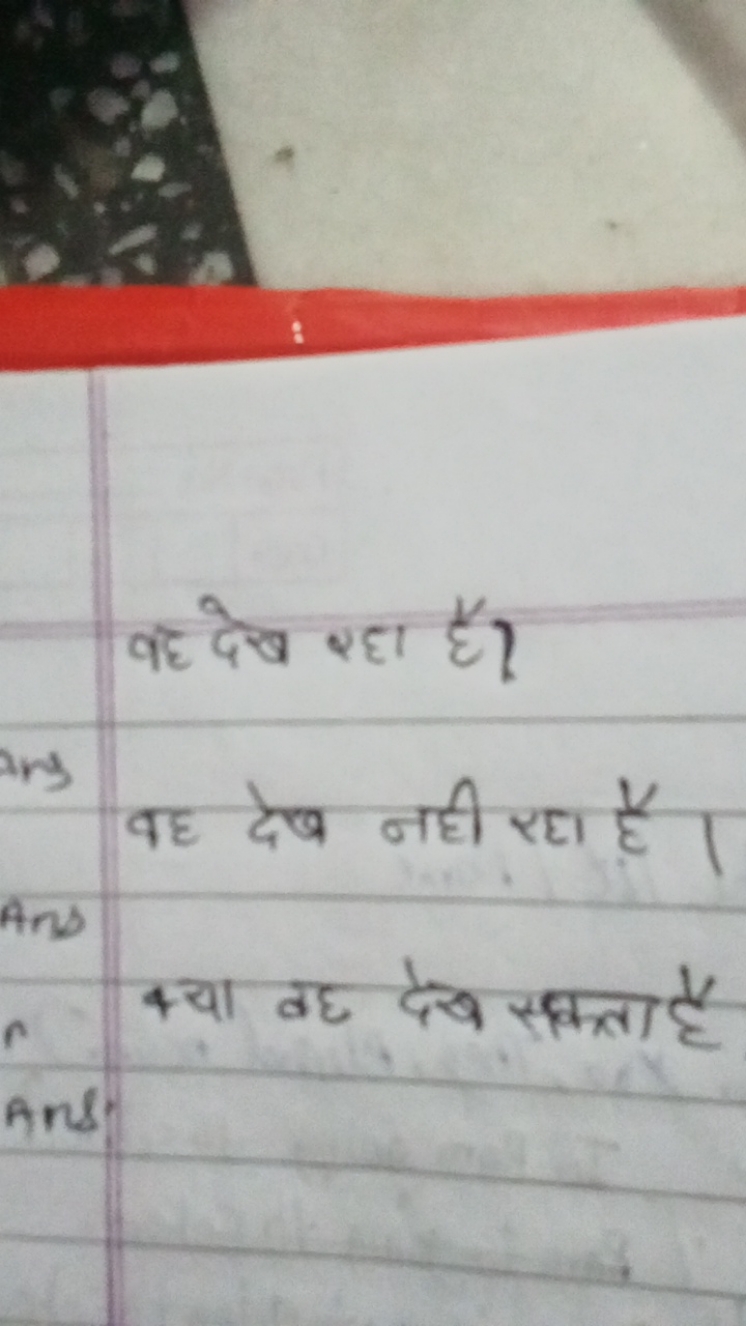 वह देख रहा है।
Ans
वह देख नही रहा है ।
Ans
क्या वह देख सकता है
Ans